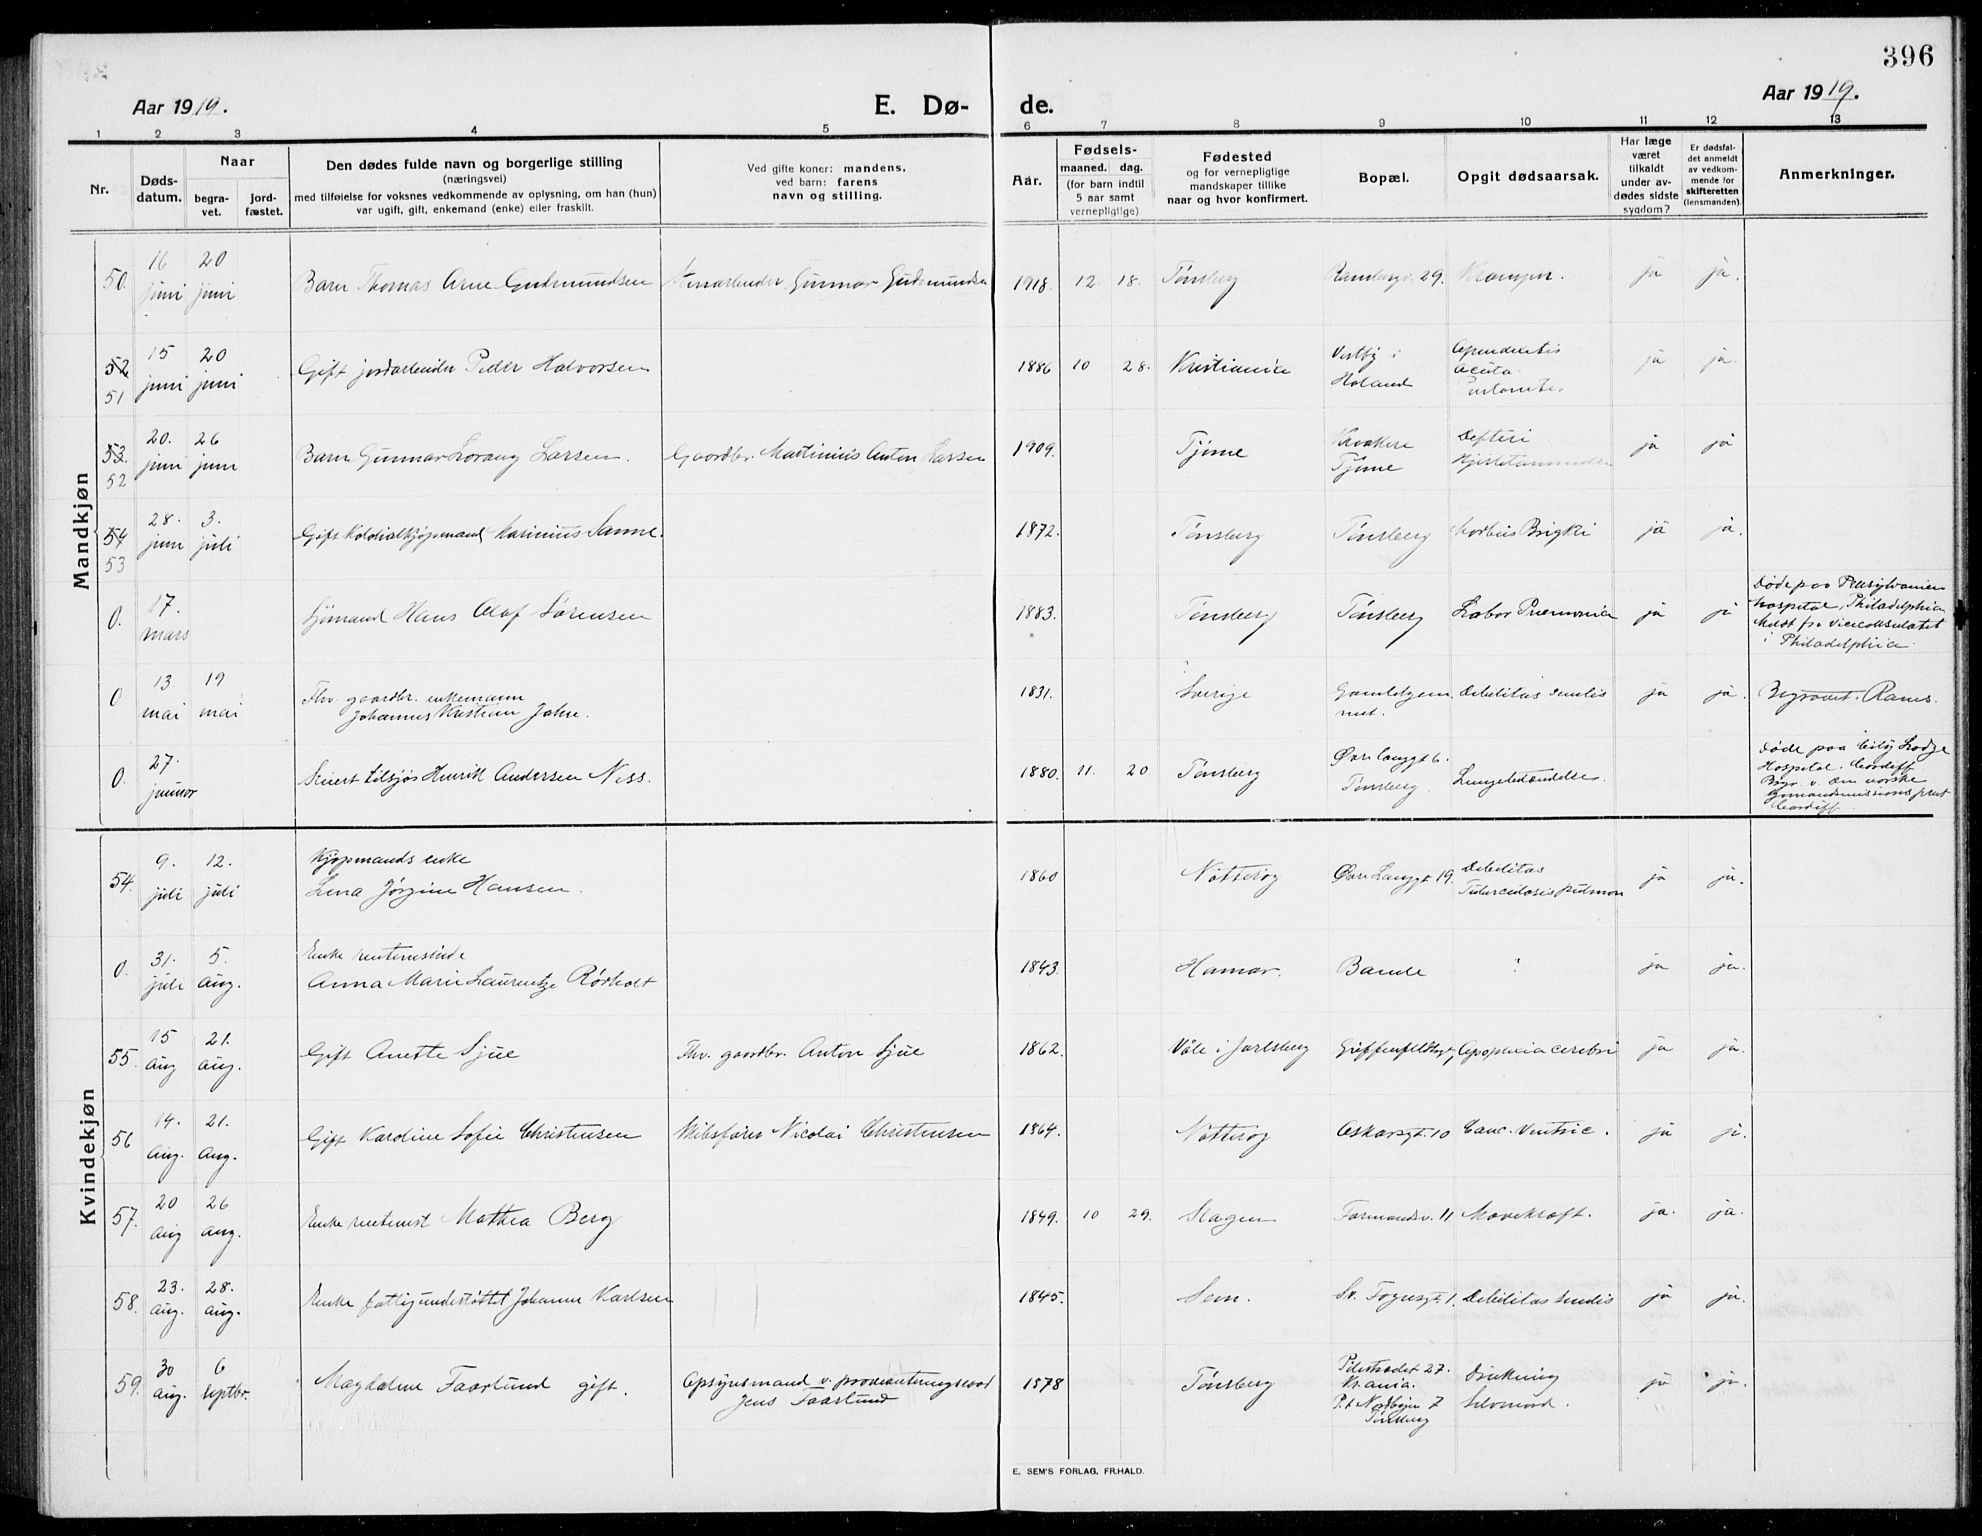 396
Aar 1919.
E. Dø-
de.
Aar 1919.
1 2 3 4 5 6 7 8 9 10 11 12 13
Nr.
Døds-
datum.
Naar
begra-
vet.
jord-
fæstet.
Den dødes fulde navn og borgerlige stilling
(næringsvei)
med tilføielse for voksnes vedkommende av oplysning, om han (hun)
var ugift, gift, enkemand (enke) eller fraskilt.
Ved gifte koner: mandens,
ved barn: farens
navn og stilling.
Aar.
Fødsels-
maaned. dag.
(for barn indtil
5 aar samt
vernepligtige)
Fødested
og for vernepligtige
mandskaper tillike
naar og hvor konfirmert.
Bopæl.
Opgit dødsaarsak.
Har læge
været
tilkaldt
under av-
dødes sidste
sygdom?
Er dødsfal-
det anmeldt
av vedkom-
mende for
skifteretten
(lensmanden).
Anmerkninger.
Mandkjøn
50. 16 juni 20 juni Barn Thomas Arne Gudmundsen Gunnar Gudmundsen 1918. 12. 18. Tønsberg 29. Kramper. ja ja.
52 51 15 juni 20 juni Gift jordarbeider Peder Halvorsen 1886 10 28. Kristiania Vestby i Holand Apendecitis acuta ja ja.
53. 52 20. juni 26 juni Barn Gunnar Lorang Larsen. Gaardbr. Martinius Anton Larsen 1909. Tjøme Tjøme Defteri ja ja
54 53 28. juni 3. juli Gift Kolonialkjøpmand Marinius Sanne. 1872. Tønsberg Tønsberg Morbus Brigkti ja ja.
0. 17. mars Sjømand Hans Olaf Sørensen 1883. Tønsberg Tønsberg Lobar Pneumonia ja ja
Døde paa Pensylvanien
hospital, Philadelphia
Meldt fra vicekonsulatet
i Philadelphia.
0 13 mai 19 mai Fhv. gaardbr. enkemann
Johannes Kristian Jahre. 1831. Sverige Gamlehjem
met. Debilitas senilis ja ja. Begravet. Rams.
0. 27. januar Stuert Henrik Andersen Ness. 1880. 11. 20. Tønsberg Øvre Langgt 6.
Tønsberg. Lungebetændelse. ja ja.
Døde paa City Lodge
Hospital. Cardiff
Begr. v. den norske
sjømandsmissions prest
Cardiff
Kvindekjøn
54. 9. juli 12. juli Kjøpmands enke
Lena Jørgine Hansen. 1860 Nøtterøy Øvre Langgt 19. Debilitas
Tuberculosis pulmon ja ja.
0. 31. juli 5. aug. Enke
Anna Marie Laurentze Rørholt 1843. Hamar. Bande ? ja ja.
55. 15 aug 21. aug. Gift Anette Sjue Fhv. gaardbr. Anton Sjue 1862. Våle i Jarlsberg Griffenfeldtsgt, Apoplexia cerebri ja ja.
56 14. aug. 21. aug. Gift Karoline Sofie Christensen Skibsfører Nicolai Christensen 1864. Nøtterøy Oskarsgt. 10 Canc. Ventric. ja ja.
57. 20 aug 26 aug. Enke rentenist Mathea Berg 1849. 10 29. Slagen Farmandsv. 11 Mavekræft. ja. ja.
58. 23. aug. 28. aug. Enke fattigunderstøttet Johanne Karlsen 1845. Sem. Sv. Foynsgt. 1. Debilitas senilis ja ja.
59. 30 aug. 6 septbr. Magdalene Faarlund gift. Opsynsmand v. provianteringsraad
Jens Faarlund 1878 Tønsberg Pilestrædet 27.
Kr.ania.
P.t. Nordbyen 7
Tønsberg Drukning
Selvmord. ja ja.
E. SEM'S FORLAG, FR.HALD.